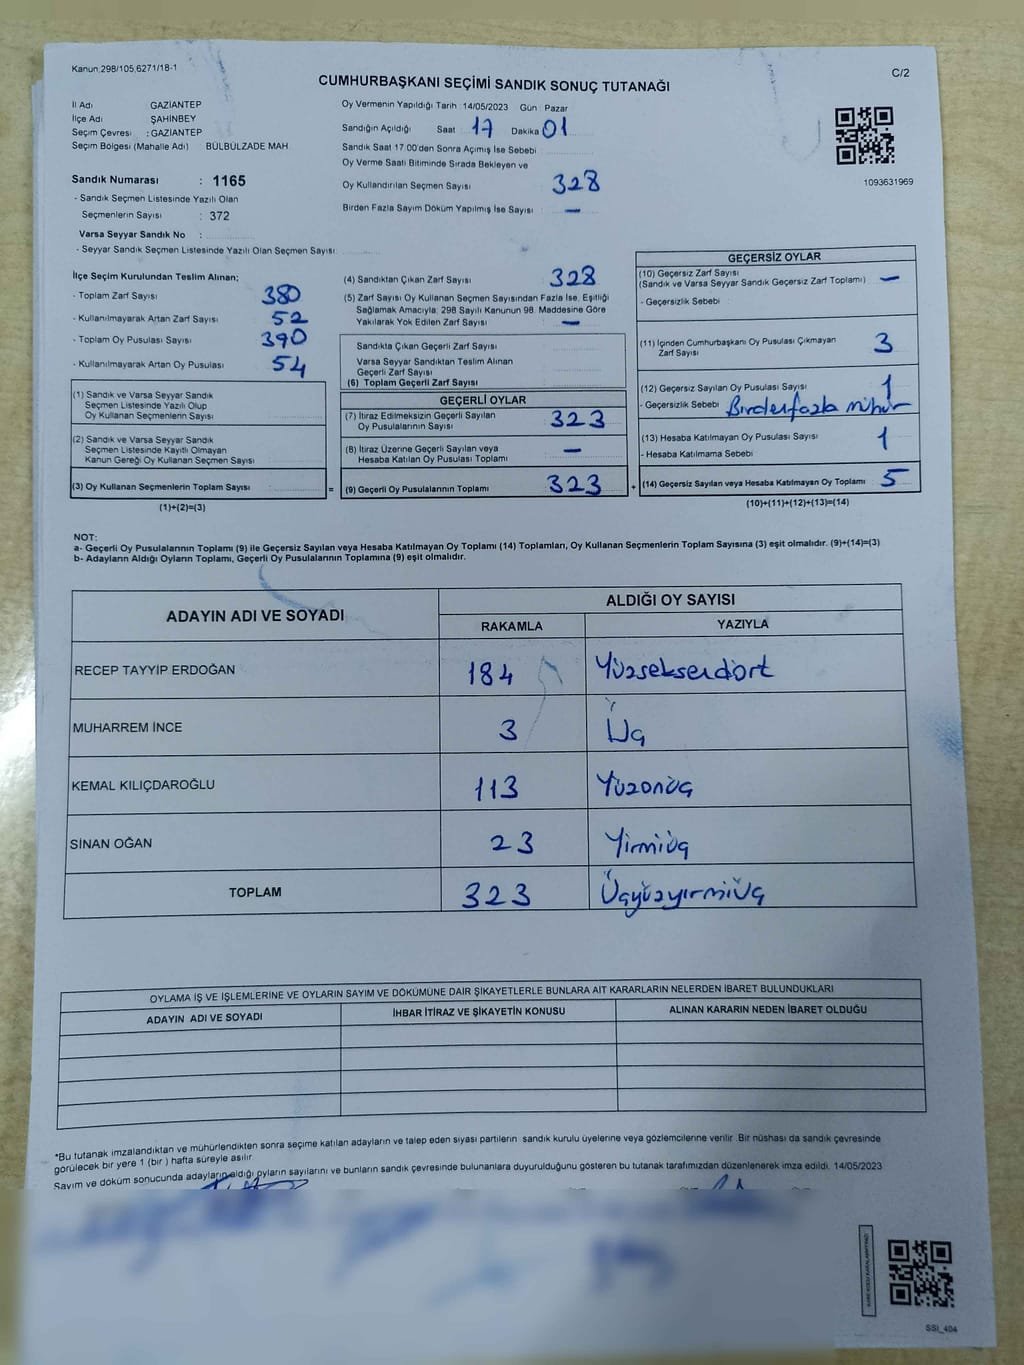 Kanun,298/105,6271/18-1
C/2
CUMHURBAŞKANI SEÇİMİ SANDIK SONUÇ TUTANAĞI
İl Adı : GAZİANTEP
İlçe Adı : ŞAHİNBEY
Seçim Çevresi : GAZİANTEP
Seçim Bölgesi (Mahalle Adı) BÜLBÜLZADE MAH.
Sandık Numarası : 1165
- Sandık Seçmen Listesinde Yazılı Olan
Seçmenlerin Sayısı : 372
Varsa Seyyar Sandık No :
- Seyyar Sandık Seçmen Listesinde Yazılı Olan Seçmen Sayısı:
Oy Vermenin Yapıldığı Tarih :14/05/2023 Gün : Pazar
Sandığın Açıldığı Saat 17 Dakika 01
Sandık Saat 17.00'den Sonra Açımış İse Sebebi
Oy Verme Saati Bitiminde Sırada Bekleyen ve
Oy Kullandırılan Seçmen Sayısı 328
Birden Fazla Sayım Döküm Yapılmış İse Sayısı : —
1093631969
İlçe Seçim Kurulundan Teslim Alınan;
- Toplam Zarf Sayısı 380
- Kullanılmayarak Artan Zarf Sayısı 52
- Toplam Oy Pusulası Sayısı 390
- Kullanılmayarak Artan Oy Pusulası 54
(1) Sandık ve Varsa Seyyar Sandık
Seçmen Listesinde Yazılı Olup
Oy Kullanan Seçmenlerin Sayısı
(2) Sandık ve Varsa Seyyar Sandık
Seçmen Listesinde Kayıtlı Olmayan
Kanun Gereği Oy Kullanan Seçmen Sayısı
(3) Oy Kullanan Seçmenlerin Toplam Sayısı =
(1)+(2)=(3)
(4) Sandıktan Çıkan Zarf Sayısı 328
(5) Zarf Sayısı Oy Kullanan Seçmen Sayısından Fazla İse, Eşitliği
Sağlamak Amacıyla; 298 Sayılı Kanunun 98. Maddesine Göre
Yakılarak Yok Edilen Zarf Sayısı —
Sandıkta Çıkan Geçerli Zarf Sayısı
Varsa Seyyar Sandıktan Teslim Alınan
Geçerli Zarf Sayısı
(6) Toplam Geçerli Zarf Sayısı
GEÇERLİ OYLAR
(7) İtiraz Edilmeksizin Geçerli Sayılan
Oy Pusulalarının Sayısı 323
(8) İtiraz Üzerine Geçerli Sayılan veya
Hesaba Katılan Oy Pusulası Toplamı —
(9) Geçerli Oy Pusulalarının Toplamı 323 +
GEÇERSİZ OYLAR
(10) Geçersiz Zarf Sayısı
(Sandık ve Varsa Seyyar Sandık Geçersiz Zarf Toplamı) —
- Geçersizlik Sebebi :
(11) İçinden Cumhurbaşkanı Oy Pusulası Çıkmayan
Zarf Sayısı 3
(12) Geçersiz Sayılan Oy Pusulası Sayısı 1
- Geçersizlik Sebebi Birden fazla mühür
(13) Hesaba Katılmayan Oy Pusulası Sayısı 1
- Hesaba Katılmama Sebebi
(14) Geçersiz Sayılan veya Hesaba Katılmayan Oy Toplamı 5
(10)+(11)+(12)+(13)=(14)
NOT:
a- Geçerli Oy Pusulalarının Toplamı (9) ile Geçersiz Sayılan veya Hesaba Katılmayan Oy Toplamı (14) Toplamları, Oy Kullanan Seçmenlerin Toplam Sayısına (3) eşit olmalıdır. (9)+(14)=(3)
b- Adayların Aldığı Oyların Toplamı, Geçerli Oy Pusulalarının Toplamına (9) eşit olmalıdır.
ADAYIN ADI VE SOYADI ALDIĞI OY SAYISI
RAKAMLA YAZIYLA
RECEP TAYYİP ERDOĞAN 184 Yüzseksendört
MUHARREM İNCE 3 Üç
KEMAL KILIÇDAROĞLU 113 Yüzonüç
SİNAN OĞAN 23 Yirmiüç
TOPLAM 323 Üçyüzyirmiüç
OYLAMA İŞ VE İŞLEMLERİNE VE OYLARIN SAYIM VE DÖKÜMÜNE DAİR ŞİKAYETLERLE BUNLARA AİT KARARLARIN NELERDEN İBARET BULUNDUKLARI
ADAYIN ADI VE SOYADI İHBAR İTİRAZ VE ŞİKAYETİN KONUSU ALINAN KARARIN NEDEN İBARET OLDUĞU
*Bu tutanak imzalandıktan ve mühürlendikten sonra seçime katılan adayların ve talep eden siyasi partilerin sandık kurulu üyelerine veya gözlemcilerine verilir. Bir nüshası da sandık çevresinde
görülecek bir yere 1 (bir) hafta süreyle asılır.
Sayım ve döküm sonucunda adayların aldığı oyların sayılarını ve bunların sandık çevresinde bulunanlara duyurulduğunu gösteren bu tutanak tarafımızdan düzenlenerek imza edildi. 14/05/2023
SSI_404